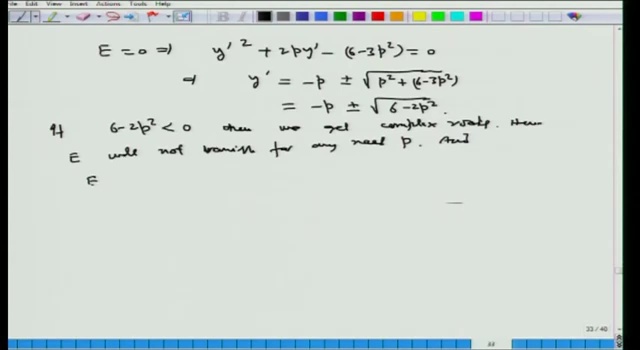 File Edit View Insert Actions Tools Help
E = 0 ⇒ y'² + 2py' - (6-3p²) = 0
⇒ y' = -p ± √p² + (6-3p²)
= -p ± √6-2p².
If 6-2p² < 0 then we get complex roots. Hence
E will not vanish for any real p. And
E
33 / 40
33